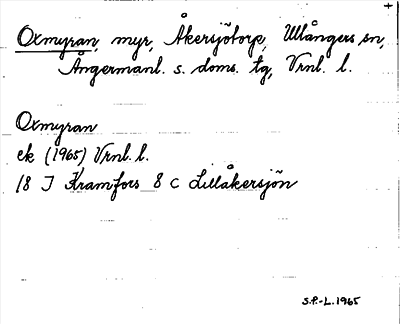 Oxmyran, myr, Åkersjötorp, Ullångers sn,
Ångermanl. s. doms. tg, Vrnl. l.
Oxmyran
ek (1965) Vrnl. l.
18 J Kramfors 8 c Lillåkersjön
S.P.-L. 1965